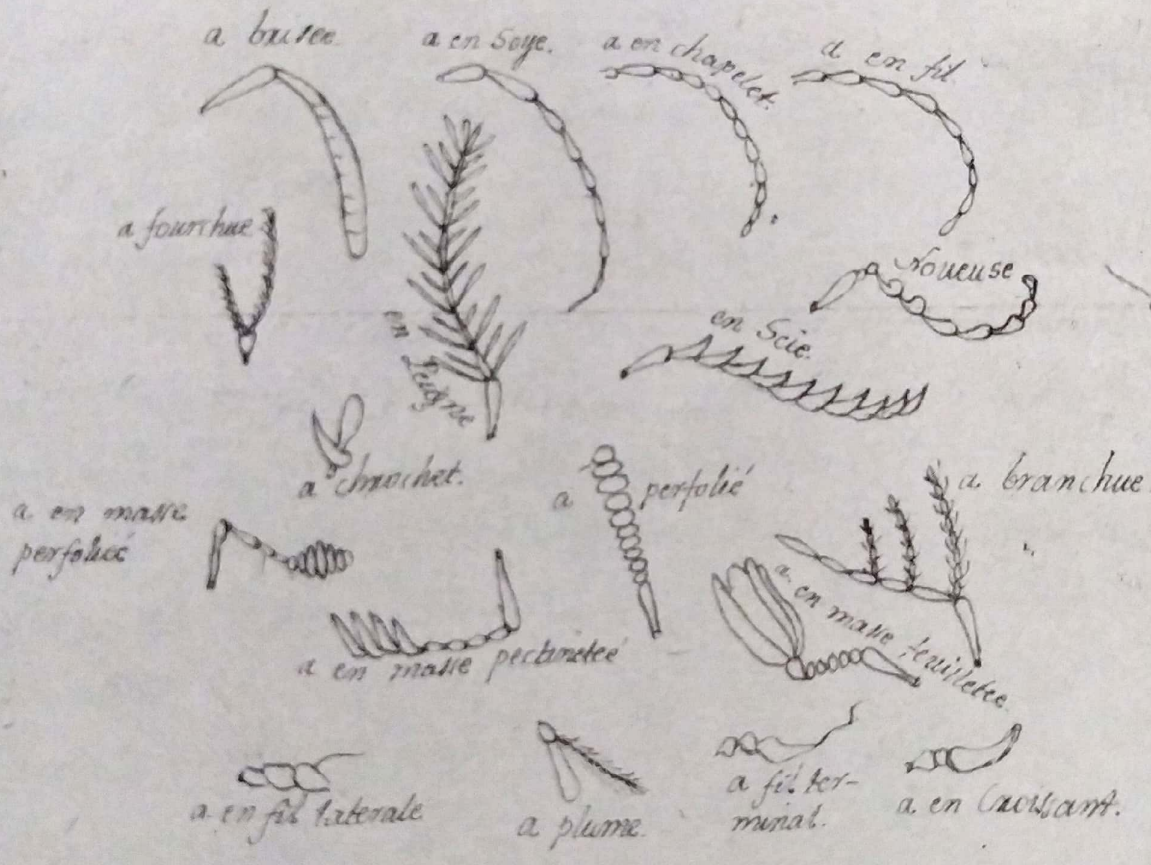 a brisee.
a en Soye.
a en chapelet.
a en fil.
a fourchue
Noueuse
en Scie.
en Peigne
a crochet.
a perfolié
a branchue
a en masse
perfoliée
a en masse pectinéteé
a en masse feuilletee.
a en fil laterale
a plume.
a fil ter-
minal.
a en Croissant.